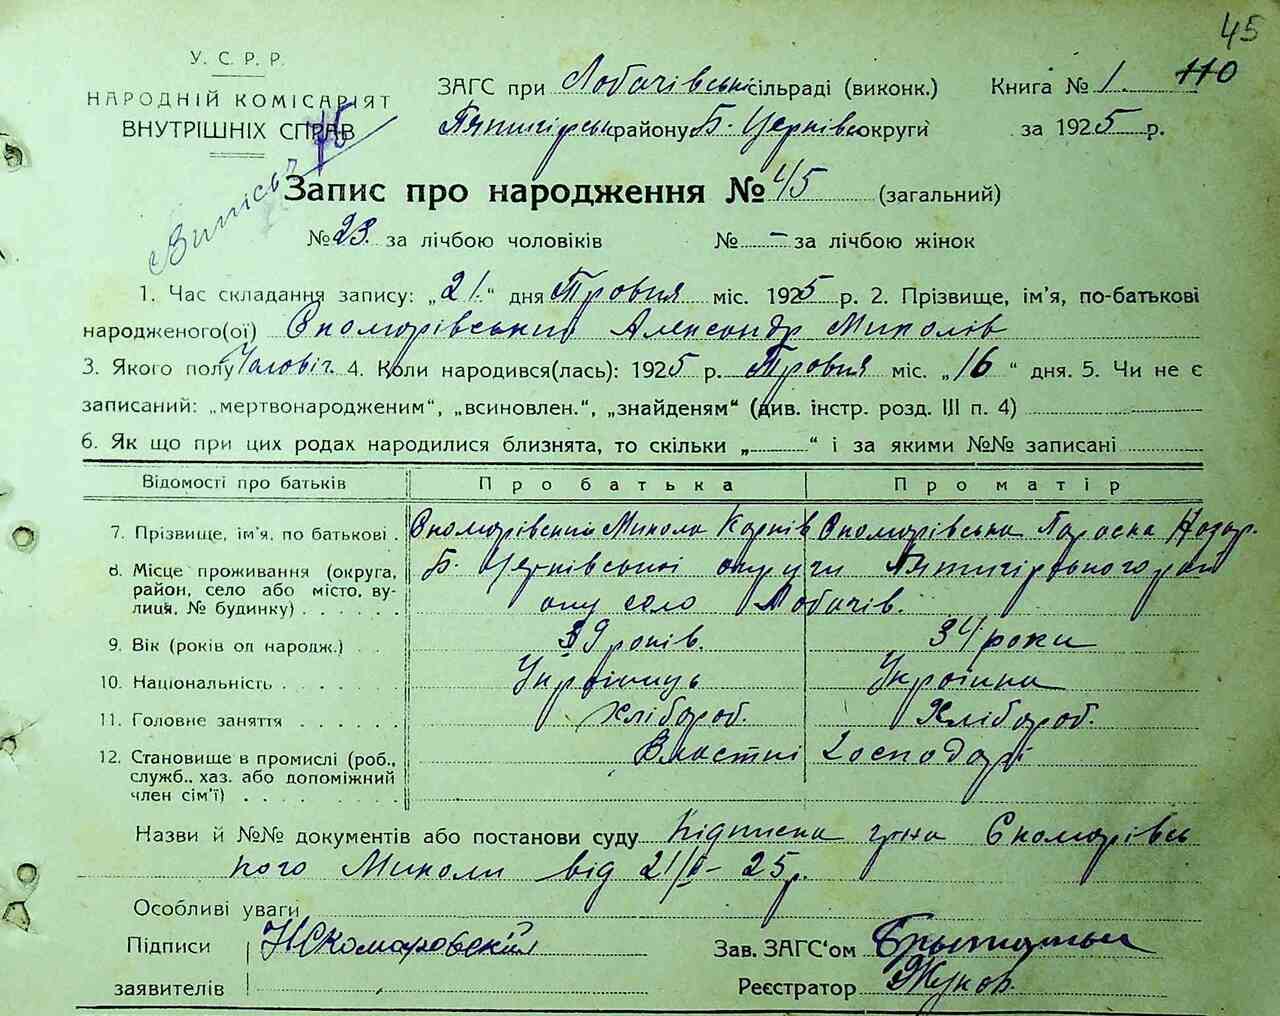 45
У. С. Р. Р.
НАРОДНІЙ КОМІСАРІЯТ
ВНУТРІШНІХ СПРАВ
ЗАГС при Лобачівській сільраді (виконк.) Книга № 1. 110
Пятигірськ району Б. Церківськ округи за 1925 р.
45
Випись
Запис про народження № 45 (загальний)
№ 23. за лічбою чоловіків № – за лічбою жінок
1. Час складання запису: „21“ дня Травня міс. 1925 р. 2. Прізвище, ім’я, по-батькові
народженого(ої) Скоморівський Александр Миколів
3. Якого полу Чоловіч. 4. Коли народився(лась): 1925 р. Травня міс. „16“ дня. 5. Чи не є
записаний: „мертвонародженим“, „всиновлен.“, „знайденям“ (див. інстр. розд. III п. 4)
6. Як що при цих родах народилися близнята, то скільки „ “ і за якими №№ записані
Відомості про батьків Про батька Про матір
7. Прізвище, ім’я, по батькові . Скоморівский Микола Карпів Скоморівська Параска Назар.
8. Місце проживання (округа, район, село або місто, вулиця, № будинку) . . . . . . Б. Церківської округи Пятигірського рай
ону село Лобачів.
9. Вік (років од народж.) . . 39 років. 34 роки
10. Національність . . . . . . . Українець Українка
11. Головне заняття . . . . . . Хлібороб. Хлібороб.
12. Становище в промислі (роб., служб., хаз. або допоміжний член сім’ї) . . . . . . . . Властні Господарі
Назви й №№ документів або постанови суду Підписка гр-на Скоморівсь
кого Миколи від 21/V– 25 р.
Особливі уваги
Підписи НСкомаровский Зав. ЗАГС‘ом
заявителів Реєстратор Жуков.